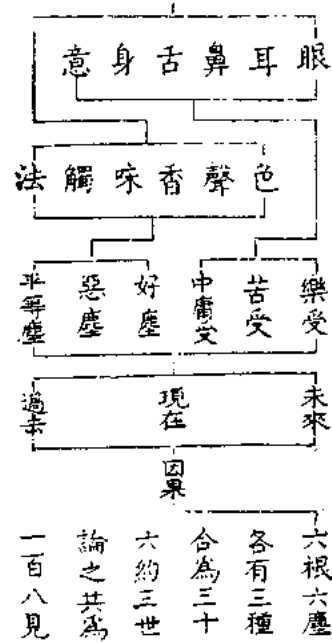 眼耳鼻舌身意
色聲香味觸法
樂受
苦受
中庸受
好塵
惡塵
平等塵
未來
現在
過去
因果
六根六塵
各有三種
合為三十
六約三世
論之共為
一百八見